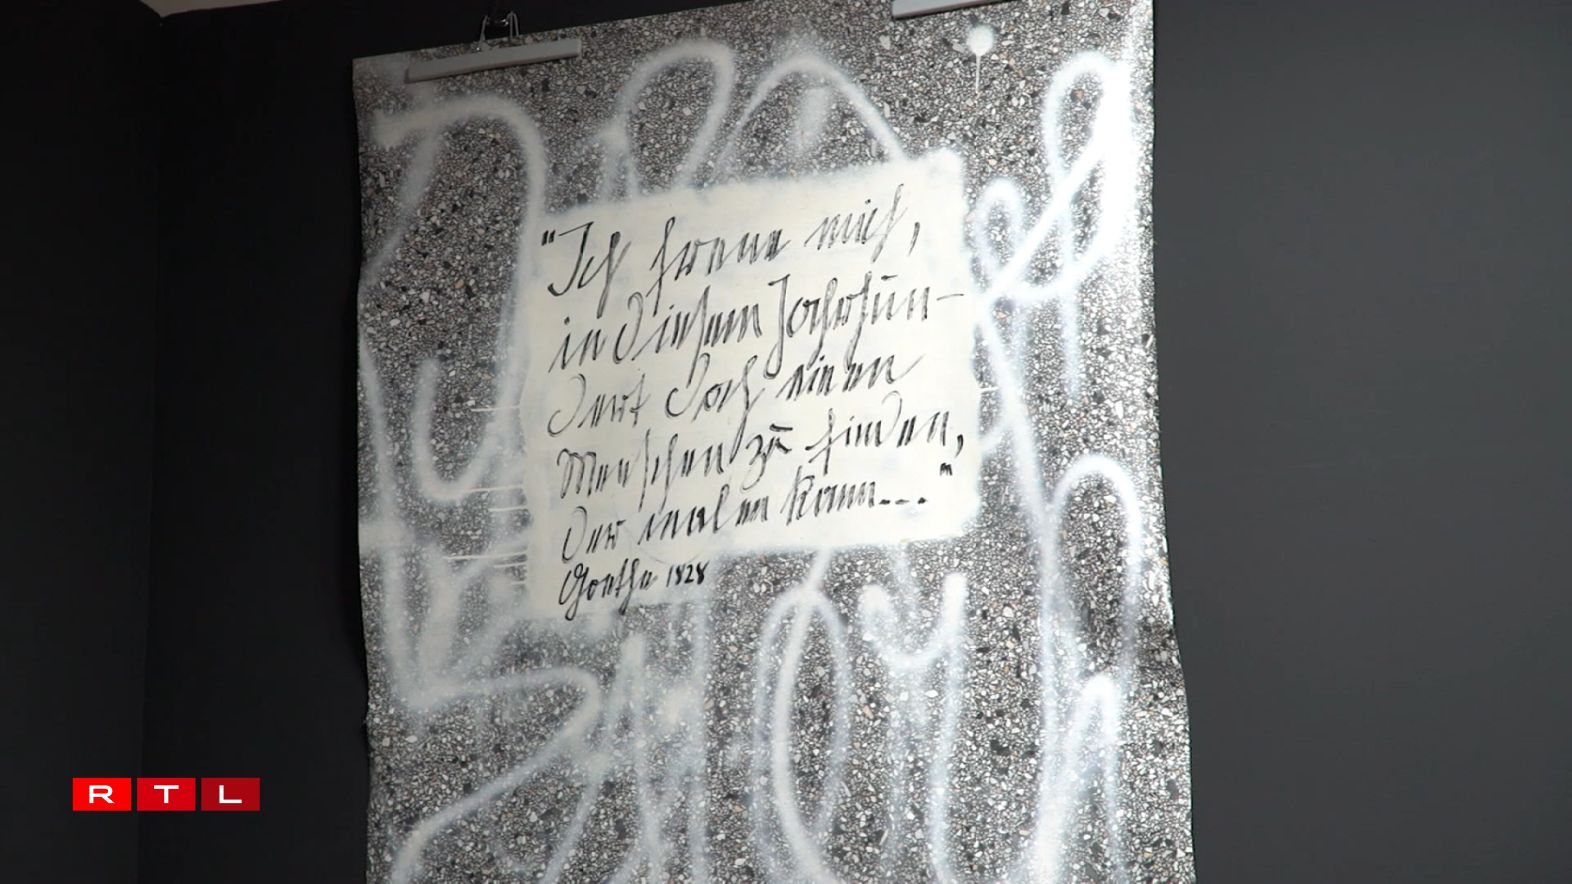 "Ich freue mich,
in diesem Jahrhun-
dert doch einen
Menschen zu finden,
der malen kann..."
Goethe 1828
RTL